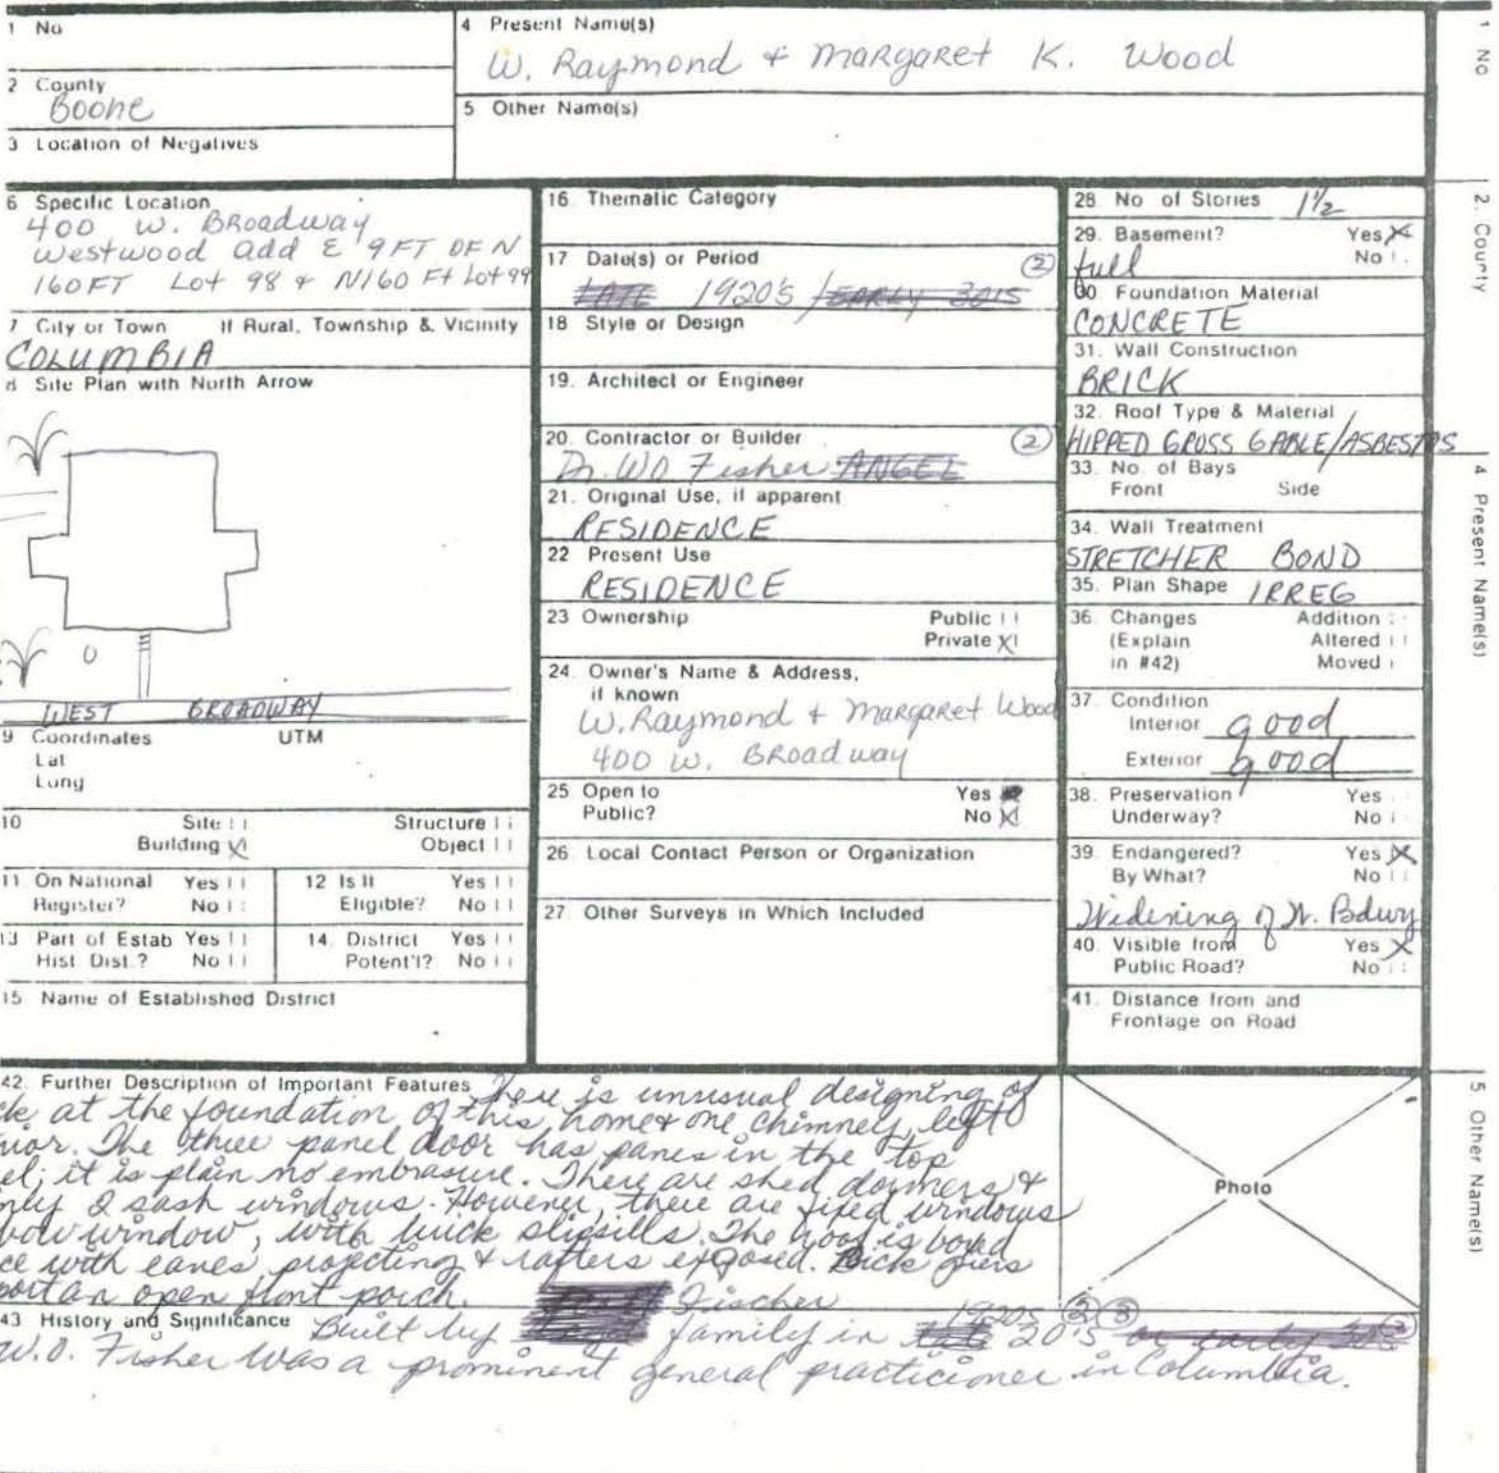 1 No
4 Present Name(s)
W. Raymond & Margaret K. Wood
2 County
Boone
5 Other Name(s)
3 Location of Negatives
6 Specific Location
400 W. Broadway
Westwood add E 9 FT OF N
160 FT Lot 98 & N160 Ft Lot 99
7 City or Town If Rural, Township & Vicinity
COLUMBIA
8 Site Plan with North Arrow
WEST BROADWAY
9 Coordinates UTM
Lat
Long
10 Site Structure
Building X Object
11 On National Register? Yes No
12 Is It Eligible? Yes No
13 Part of Estab Hist Dist.? Yes No
14. District Potent'l? Yes No
15 Name of Established District
16. Thematic Category
17 Date(s) or Period 2
LATE 1920's / EARLY 30IS
18 Style or Design
19. Architect or Engineer
20. Contractor or Builder 2
Dr. WO Fisher ANGEL
21. Original Use, if apparent
RESIDENCE
22 Present Use
RESIDENCE
23 Ownership Public
Private X
24. Owner's Name & Address,
if known
W. Raymond & Margaret Wood
400 W. Broadway
25 Open to Yes
Public? No X
26. Local Contact Person or Organization
27. Other Surveys in Which Included
28. No of Stories 1½
29. Basement? Yes X
full No
30. Foundation Material
CONCRETE
31. Wall Construction
BRICK
32. Roof Type & Material
HIPPED GROSS GABLE/ASBESTOS
33. No. of Bays
Front Side
34. Wall Treatment
STRETCHER BOND
35. Plan Shape IRREG
36. Changes Addition
(Explain Altered
in #42) Moved
37. Condition
Interior good
Exterior good
38. Preservation Yes
Underway? No
39. Endangered? Yes X
By What? No
Widening of W. Bdwy
40. Visible from Yes X
Public Road? No
41. Distance from and
Frontage on Road
42. Further Description of Important Features There is unusual designing of
ck at the foundation of this home & one chimney, left
rior. The three panel door has panes in the top
el; it is plain no embrasure. There are shed dormers &
nly 2 sash windows. However, there are fixed windows
bow window, with brick slipsills. The roof is boxed
ce with eaves projecting & rafters exposed. Bick piers
port an open front porch.
Photo
Fischer 1920s 2 3
43 History and Significance Built by family in late 20's or early 30s 2
W.O. Fisher was a prominent general practicioner in Columbia.
1 No
2. County
4 Present Name(s)
5 Other Name(s)